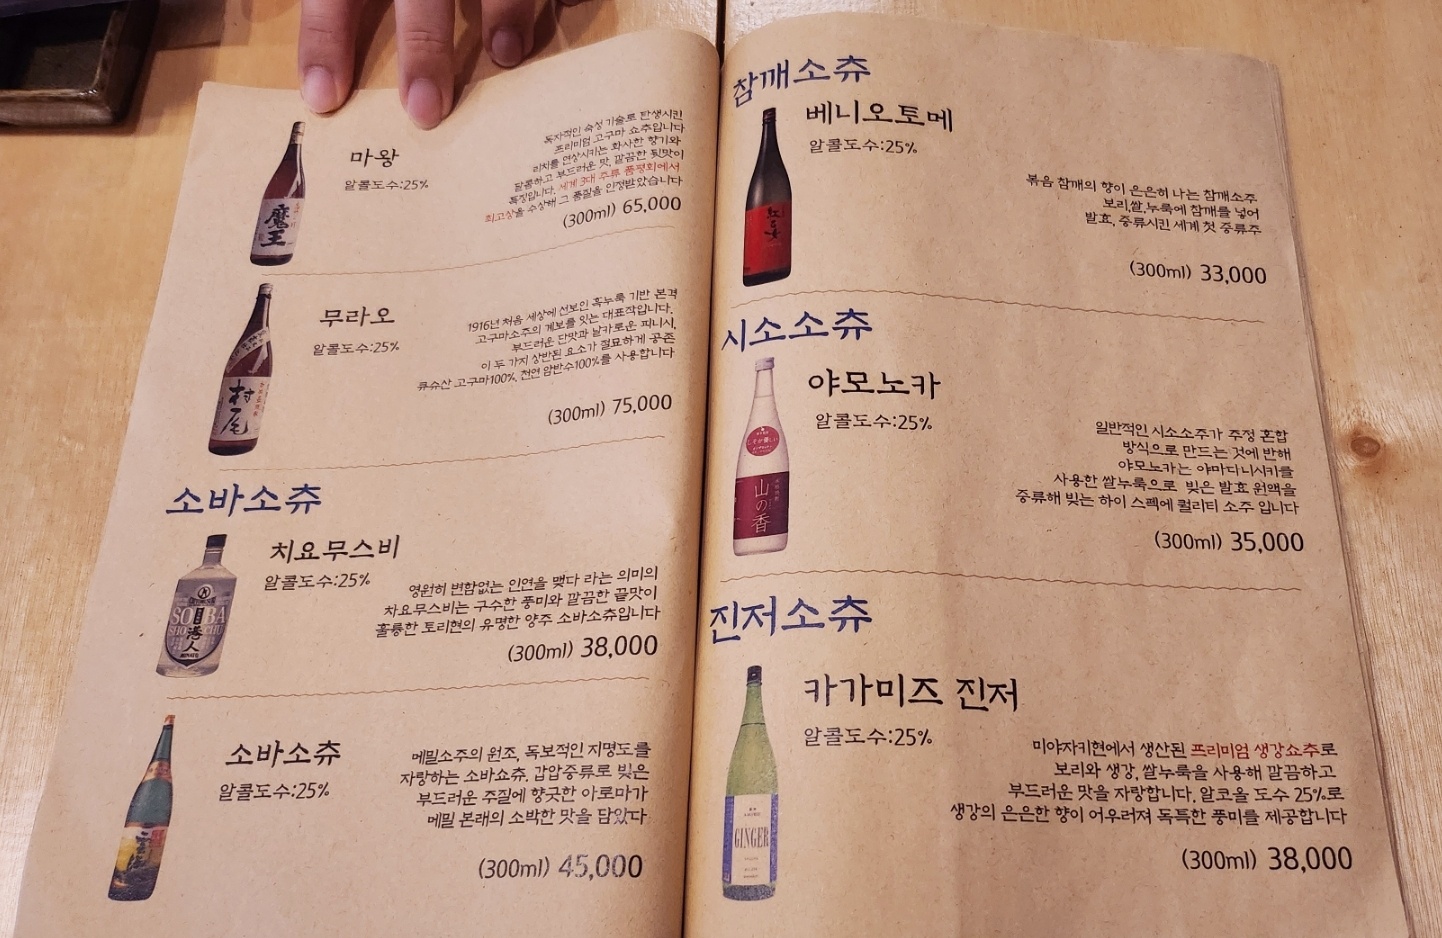 마왕
알콜도수:25%
독자적인 숙성 기술로 탄생시킨
프리미엄 고구마 쇼츄입니다
리치를 연상시키는 화사한 향기와
달콤하고 부드러운 맛, 깔끔한 뒷맛이
특징입니다. 세계 3대 주류 품평회에서
최고상을 수상해 그 품질을 인정받았습니다
(300ml) 65,000
魔王
무라오
알콜도수:25%
1916년 처음 세상에 선보인 흑누룩 기반 본격
고구마소주의 계보를 잇는 대표작입니다.
부드러운 단맛과 날카로운 피니시,
이 두 가지 상반된 요소가 절묘하게 공존
큐슈산 고구마100%, 천연 암반수100%를 사용합니다
(300ml) 75,000
村尾
소바소츄
치요무스비
알콜도수:25%
영원히 변함없는 인연을 맺다 라는 의미의
치요무스비는 구수한 풍미와 깔끔한 끝맛이
훌륭한 토리현의 유명한 양주 소바소츄입니다
(300ml) 38,000
SOBA
SHOCHU
港人
소바소츄
알콜도수:25%
메밀소주의 원조, 독보적인 지명도를
자랑하는 소바쇼츄, 감압증류로 빚은
부드러운 주질에 향긋한 아로마가
메밀 본래의 소박한 맛을 담았다
(300ml) 45,000
참깨소츄
베니오토메
알콜도수:25%
볶음 참깨의 향이 은은히 나는 참깨소주
보리,쌀,누룩에 참깨를 넣어
발효, 증류시킨 세계 첫 증류주
(300ml) 33,000
시소소츄
야모노카
알콜도수:25%
일반적인 시소소주가 주정 혼합
방식으로 만드는 것에 반해
야모노카는 야마다니시키를
사용한 쌀누룩으로 빚은 발효 원액을
증류해 빚는 하이 스펙에 퀄리티 소주 입니다
(300ml) 35,000
山の香
진저소츄
카가미즈 진저
알콜도수:25%
미야자키현에서 생산된 프리미엄 생강쇼츄로
보리와 생강, 쌀누룩을 사용해 깔끔하고
부드러운 맛을 자랑합니다. 알코올 도수 25%로
생강의 은은한 향이 어우러져 독특한 풍미를 제공합니다
(300ml) 38,000
GINGER